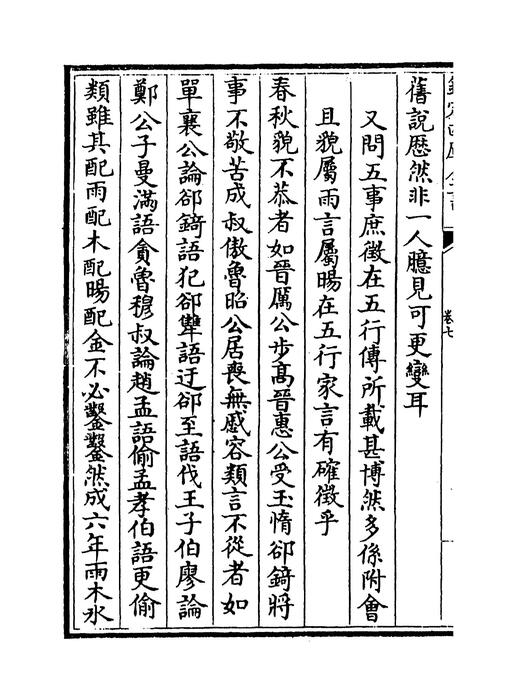 卷七
舊說歴然非一人臆見可更變耳
又問五事庶徵在五行傳所載甚博然多係附會
且貌屬雨言屬暘在五行家言有確徵乎
春秋貌不恭者如晉厲公步高晉惠公受玉惰郤錡將
事不敬苦成叔傲魯昭公居喪無慼容類言不從者如
單襄公論郤錡語犯郤犨語迂郤至語伐王子伯廖論
鄭公子曼滿語貪魯穆叔論趙孟語偷孟孝伯語更偷
類雖其配雨配木配暘配金不必鑿鑿然成六年雨木氷